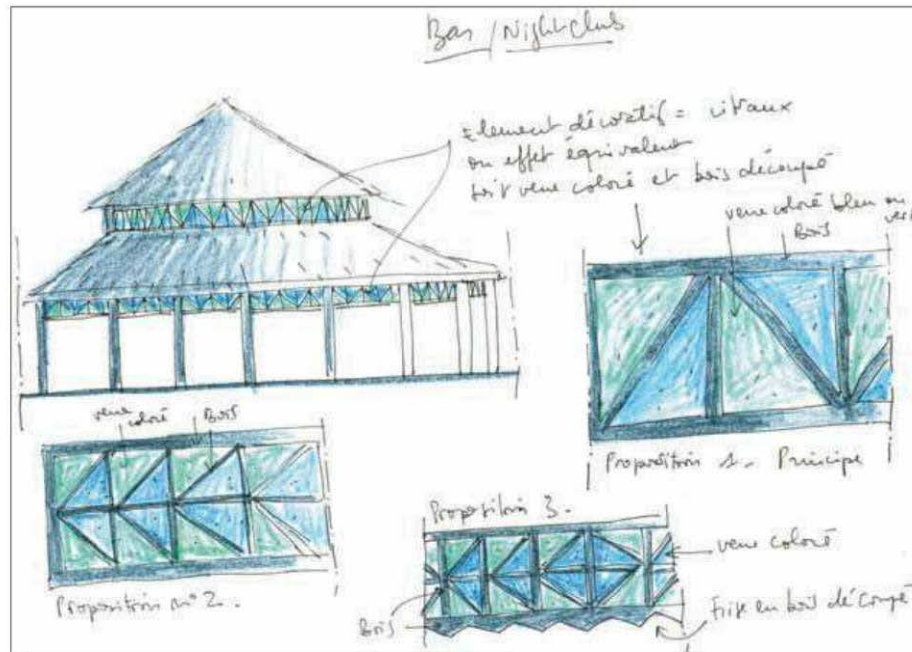 Bar / Nightclub
Element décoratif = vitraux
ou effet équivalent
soit verre coloré et bois découpé
verre coloré bleu ou
vert
Bois
verre
coloré
Bois
Proposition 1. Principe
Proposition n° 2.
Proposition 3.
verre coloré
Bois
Frise en bois découpé